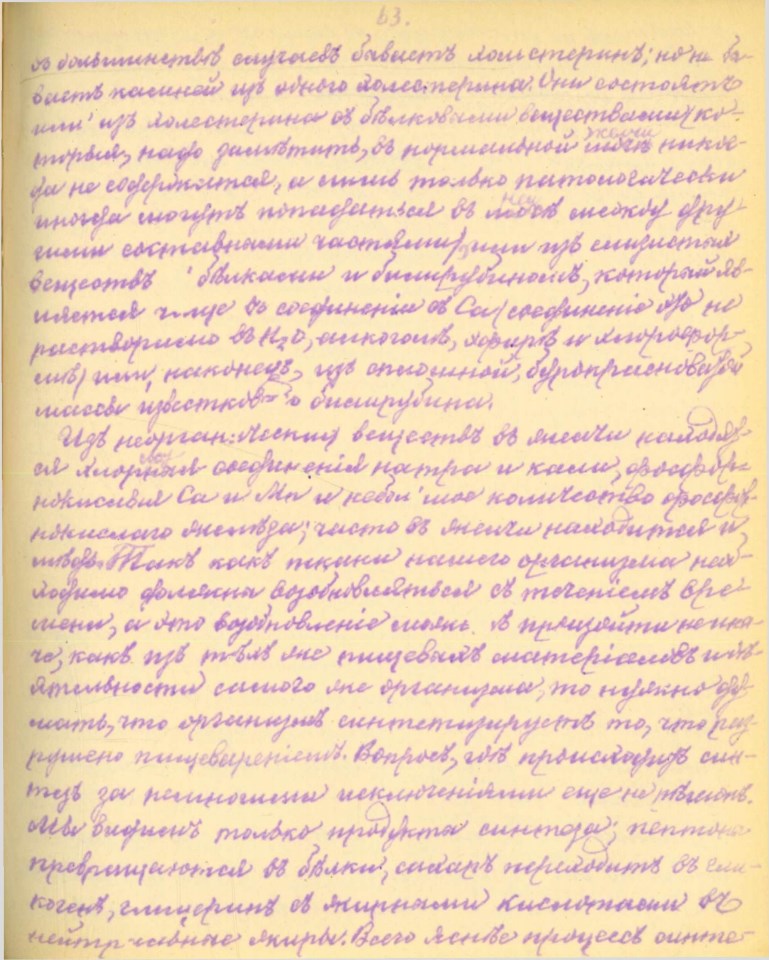 63.
въ большинствѣ случаевъ бываетъ холестеринъ; но не бы-
ваетъ камней изъ одного холестерина. Они состоятъ
или изъ холестерина съ бѣлковыми веществами (ко-
торыя, надо замѣтить, въ нормальной желчи никог-
да не содержатся, а лишь только патологически
иногда могутъ попадаться въ ней между дру-
гими составными частями), или изъ слизистыхъ
веществъ съ бѣлками и билирубиномъ, который яв-
ляется чаще въ соединеніи съ Ca (соединеніе это не
растворимо въ H₂O, алкоголѣ, эфирѣ и хлорофор-
мѣ) или, наконецъ, изъ сплошной, бурокрасноватой
массы известковаго билирубина.
Изъ неорганическихъ веществъ въ желчи находят-
ся хлорныя соединенія натра и кали, фосфор-
нокислыя Ca и Mn и небольшое количество фосфор-
нокислаго желѣза; часто въ желчи находится и
мѣдь. Такъ какъ ткани нашего организма необ-
ходимо должны возобновляться съ теченіемъ вре-
мени, а это возобновленіе можетъ произойти не ина-
че, какъ изъ тѣхъ же пищевыхъ матеріаловъ и дѣ-
ятельности самого же организма, то нужно ду-
мать, что организмъ синтетизируетъ то, что раз-
рушено пищевареніемъ. Вопросъ, гдѣ происходитъ син-
тезъ за немногими исключеніями еще не рѣшенъ.
Мы видимъ только продукты синтеза; пептоны
превращаются въ бѣлки, сахаръ переходитъ въ гли-
когенъ, глицеринъ съ жирными кислотами въ
нейтральные жиры. Всего яснѣе процессъ синте-